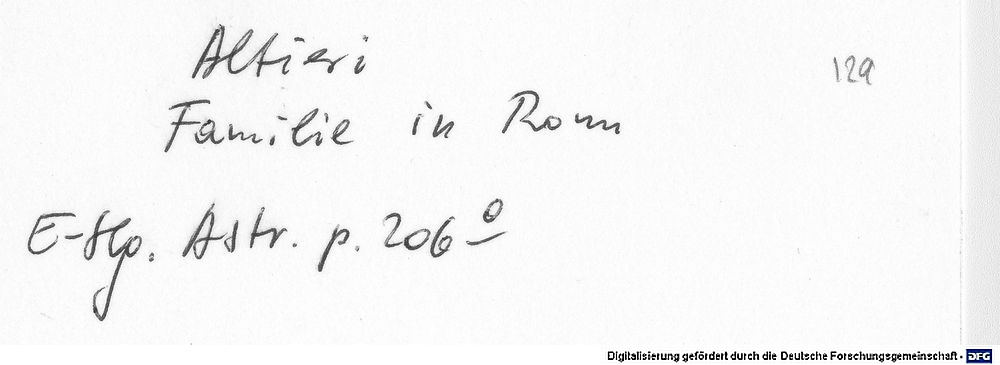 Altieri
129
Familie in Rom
Astr. p. 206
Digitalisierung gefördert durch die Deutsche Forschungsgemeinschaft - DFG